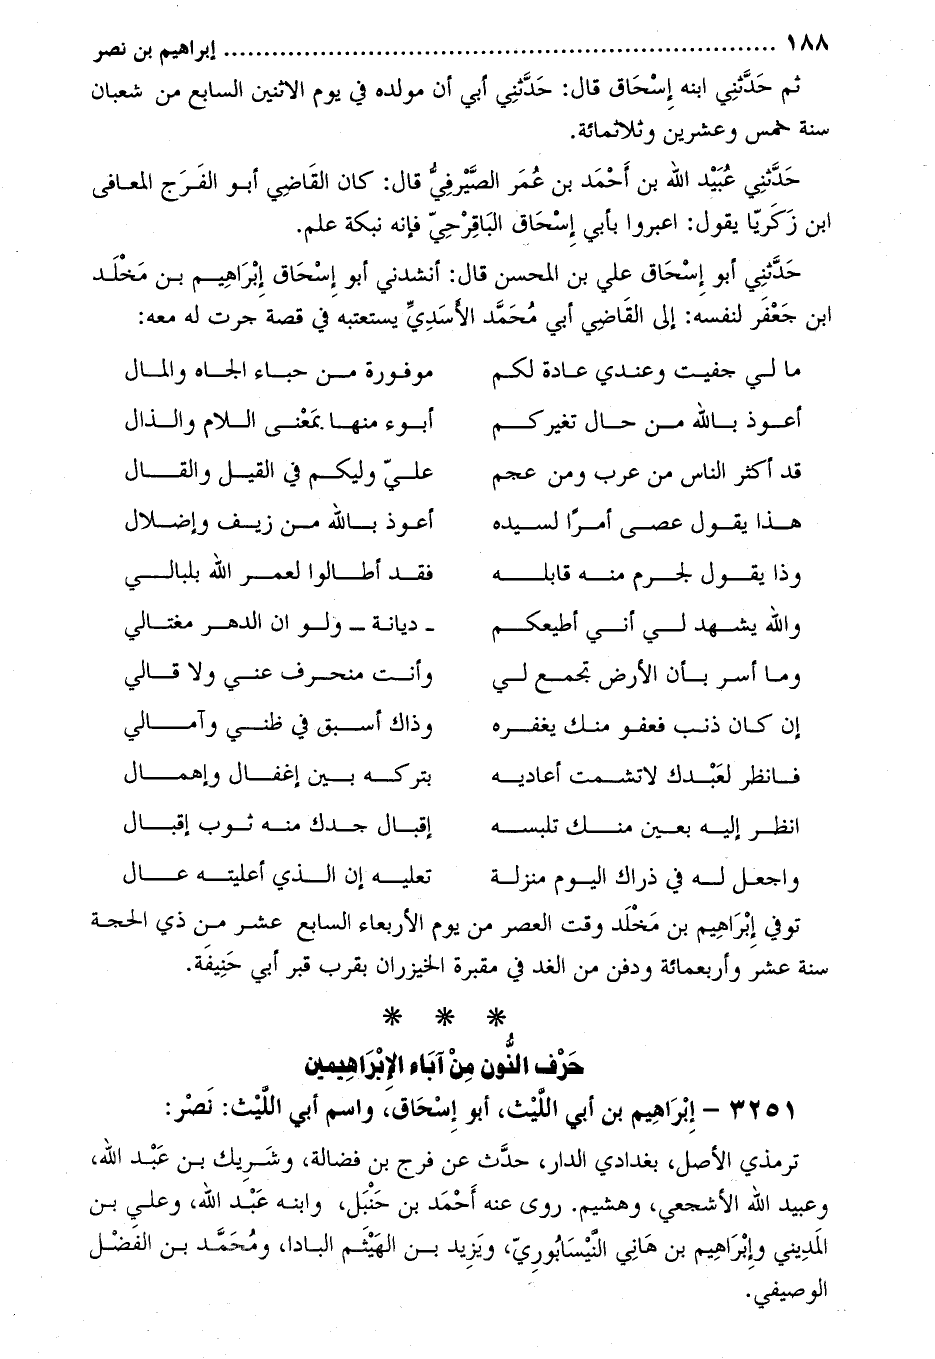 ١٨٨ ..................................................................... إبراهيم بن نصر
ثم حَدَّثنِي ابنه إِسْحَاق قال: حَدَّثنِي أبي أن مولده في يوم الاثنين السابع من شعبان
سنة خمس وعشرين وثلاثمائة.
حَدَّثنِي عُبَيْد الله بن أَحْمَد بن عُمَر الصَّيْرفِيُّ قال: كان القَاضِي أبو الفَرَج المعافى
ابن زَكَرِيّا يقول: اعبروا بأبي إِسْحَاق البَاقَرْحِيّ فإنه نبكة علم.
حَدَّثنِي أبو إِسْحَاق علي بن المحسن قال: أنشدني أبو إِسْحَاق إِبْرَاهِيم بن مَخْلَد
ابن جَعْفَر لنفسه: إلى القَاضِي أبي مُحَمَّد الأَسَدِيِّ يستعتبه في قصة جرت له معه:
ما لي جفيت وعندي عادة لكم موفورة من حباء الجاه والمال
أعوذ بالله من حال تغيركم أبوء منها بمَعْنى اللام والذال
قد أكثر الناس من عرب ومن عجم عليّ وليكم في القيل والقال
هذا يقول عصى أمرًا لسيده أعوذ بالله من زيف وإضلال
وذا يقول لجرم منه قابله فقد أطالوا لعمر الله بلبالي
والله يشهد لي أني أطيعكم - ديانة - ولو ان الدهر مغتالي
وما أسر بأن الأرض تجمع لي وأنت منحرف عني ولا قالي
إن كان ذنب فعفو منك يغفره وذاك أسبق في ظني وآمالي
فانظر لعَبْدك لاتشمت أعاديه بتركه بين إغفال وإهمال
انظر إليه بعين منك تلبسه إقبال جدك منه ثوب إقبال
واجعل له في ذراك اليوم منزلة تعليه إن الذي أعليته عال
توفي إِبْرَاهِيم بن مَخْلَد وقت العصر من يوم الأربعاء السابع عشر من ذي الحجة
سنة عشر وأربعمائة ودفن من الغد في مقبرة الخيزران بقرب قبر أبي حَنِيفَة.
* * *
حَرْف النُّون مِنْ آبَاء الإِبْرَاهِيمين
٣٢٥١ – إِبْرَاهِيم بن أبي اللَّيْث، أبو إِسْحَاق، واسم أبي اللَّيْث: نَصْر:
ترمذي الأصل، بغدادي الدار، حدَّث عن فرج بن فضالة، وشَريك بن عَبْد الله،
وعبيد الله الأشجعي، وهشيم. روى عنه أَحْمَد بن حَنْبَل، وابنه عَبْد الله، وعلي بن
المَدِيني وإِبْرَاهِيم بن هَانِي النَّيْسَابُوريّ، ويَزِيد بن الهَيْثم البادا، ومُحَمَّد بن الفَضْل
الوصيفي.